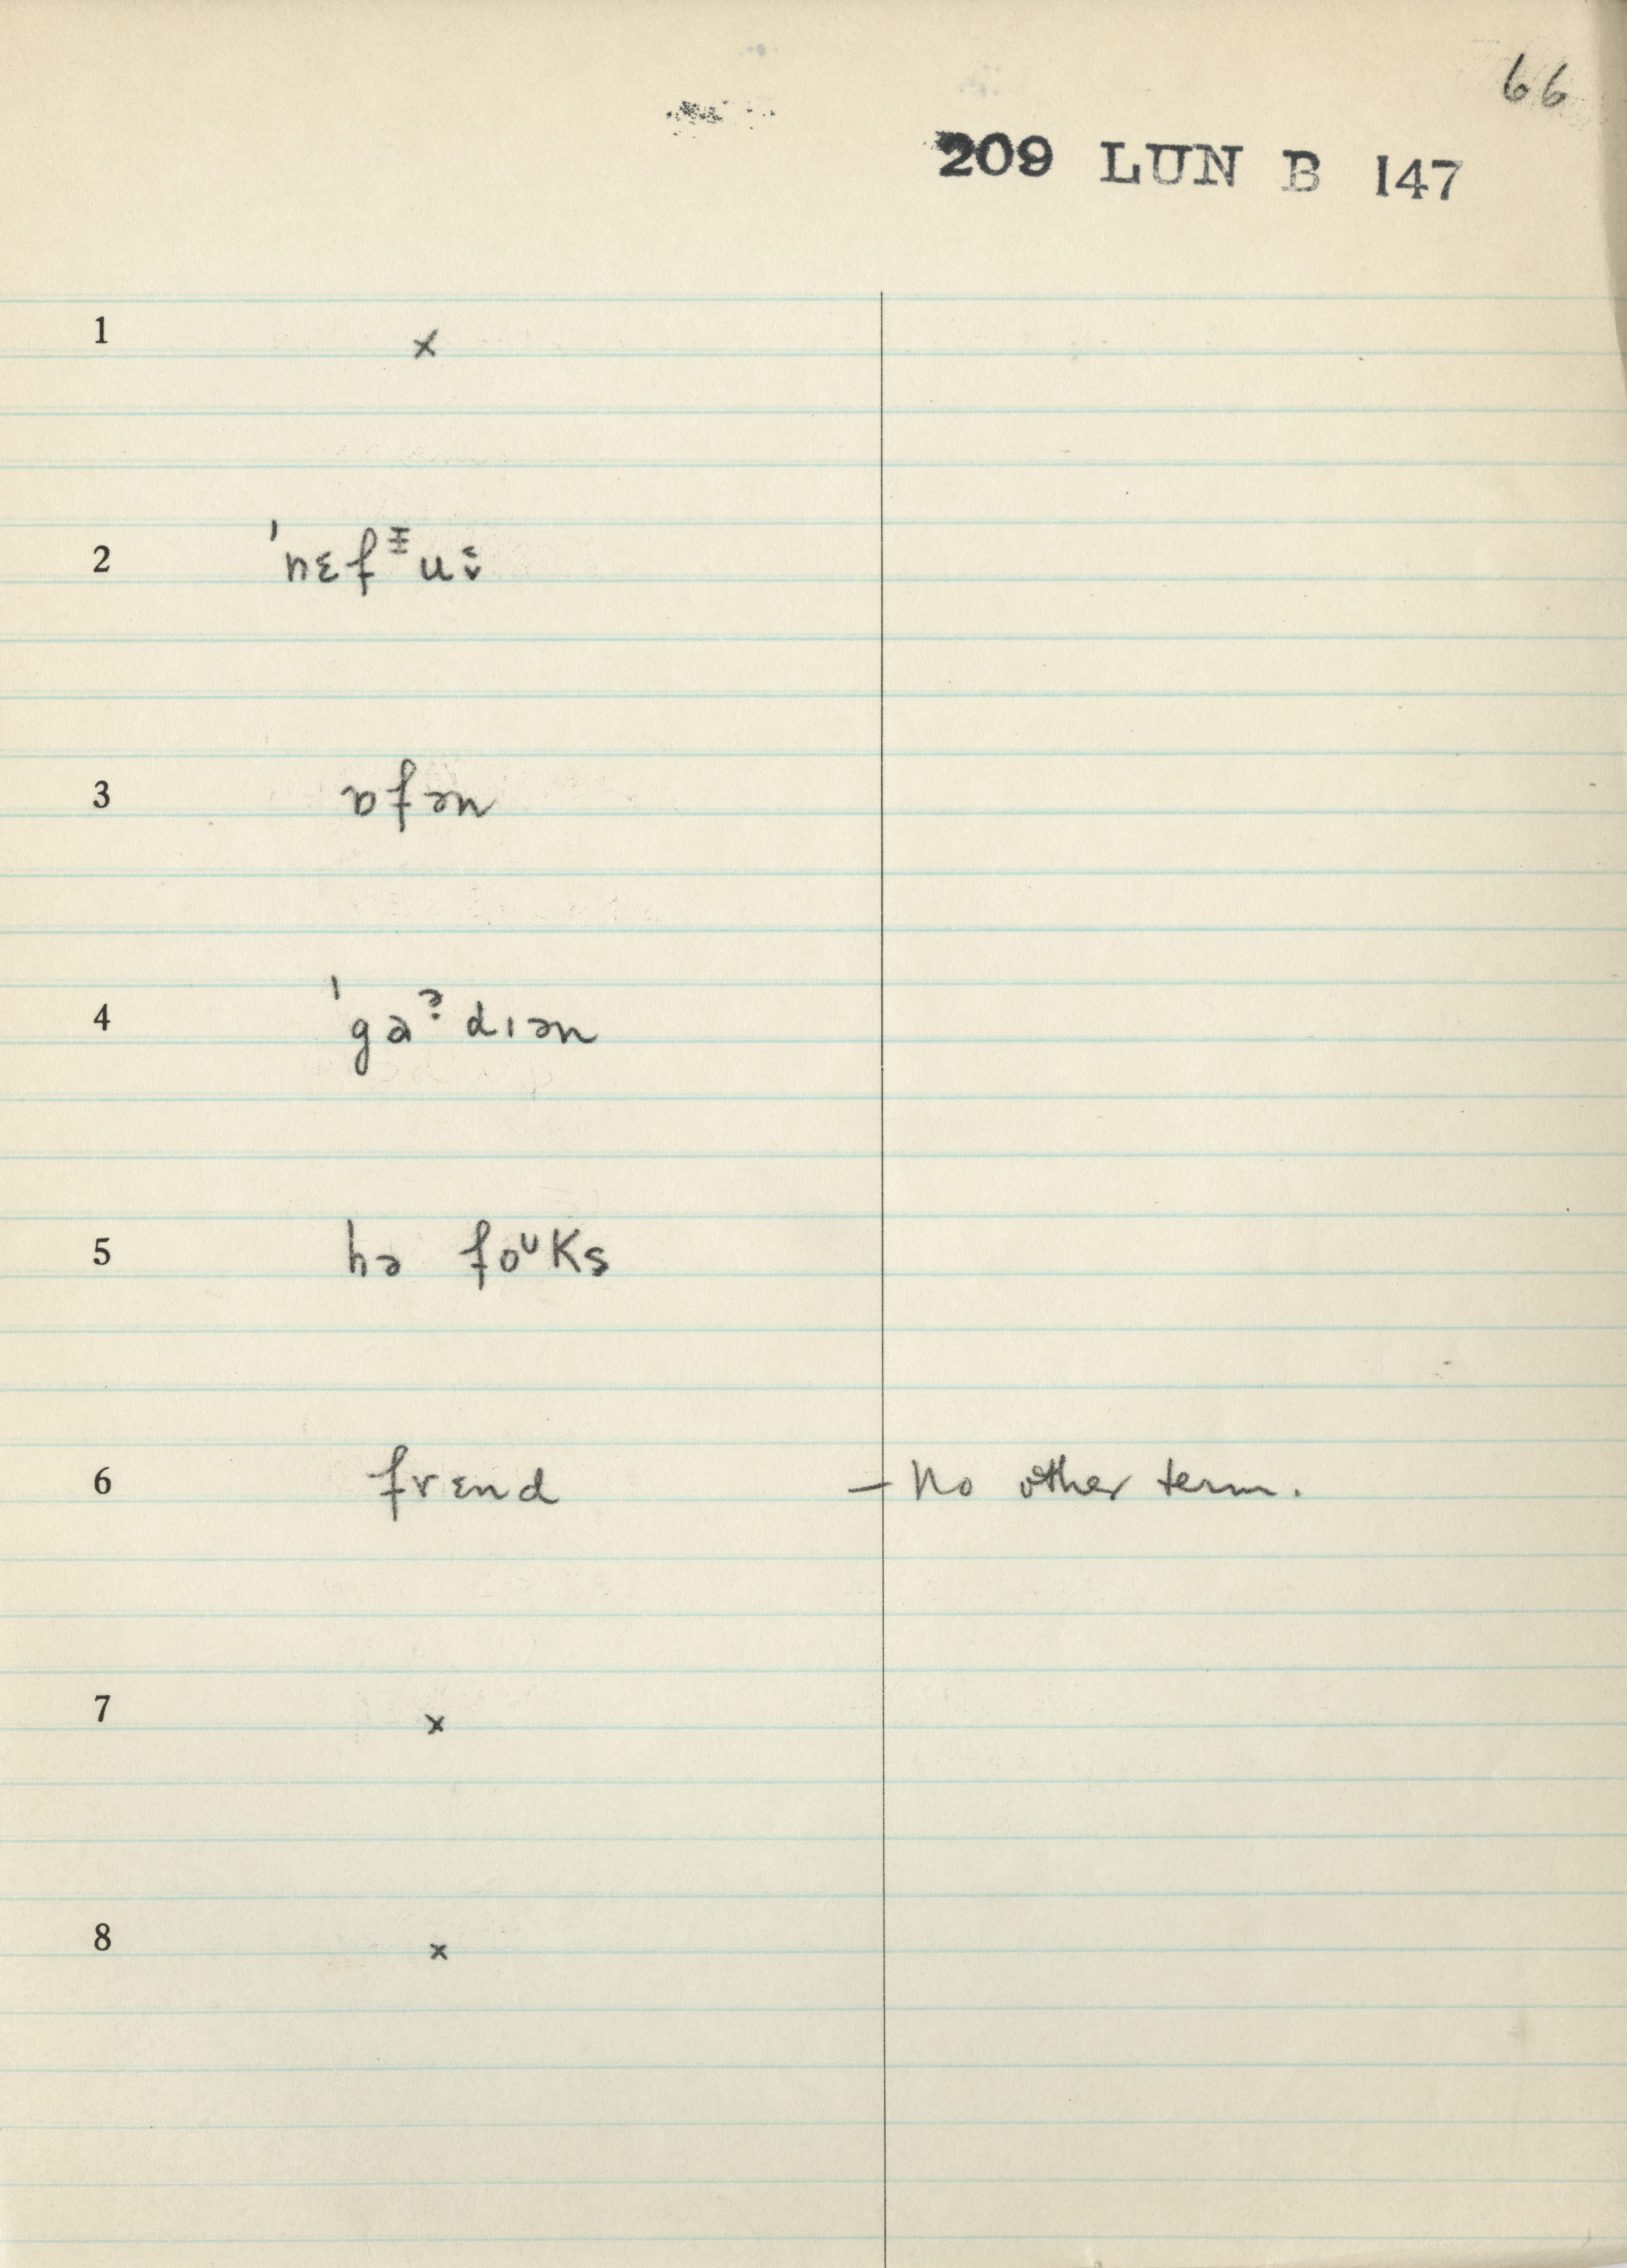 66
209 LUN B 147
1 ×
2 ˈnɛfᵻuˑ
3 ɒfən
4 ˈgaˀdɪən
5 hə foᵘks
6 frɛnd – No other term.
7 ×
8 ×